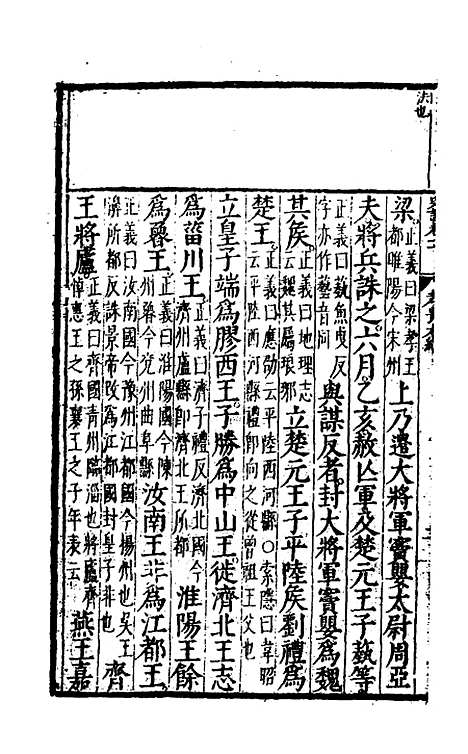 法也
梁正義曰梁孝王都睢陽今宋州上乃遣大將軍竇嬰太尉周亞
夫將兵誅之六月乙亥赦亡軍及楚元王子蓺等
正義曰蓺魚曳反字亦作藝音同與謀反者封大將軍竇嬰爲魏
其矦正義曰地理志云魏其屬琅邪立楚元王子平陸矦劉禮爲
楚王正義曰應劭云平陸西河縣○索隱曰韋昭云平陸西河縣禮卽向之從曾祖王父也
立皇子端爲膠西王子勝爲中山王徙濟北王志
爲菑川王正義曰濟子禮反濟北國今濟州盧縣卽濟北王所都淮陽王餘
爲魯王正義曰淮陽國今陳州魯今兗州曲阜縣汝南王非爲江都王
正義曰汝南國今豫州江都國今揚州也吳王濞所都反誅景帝改爲江都國封皇子非也齊
王將廬正義曰齊國青州臨淄也將廬齊悼惠王之孫襄王之子年表云燕王嘉